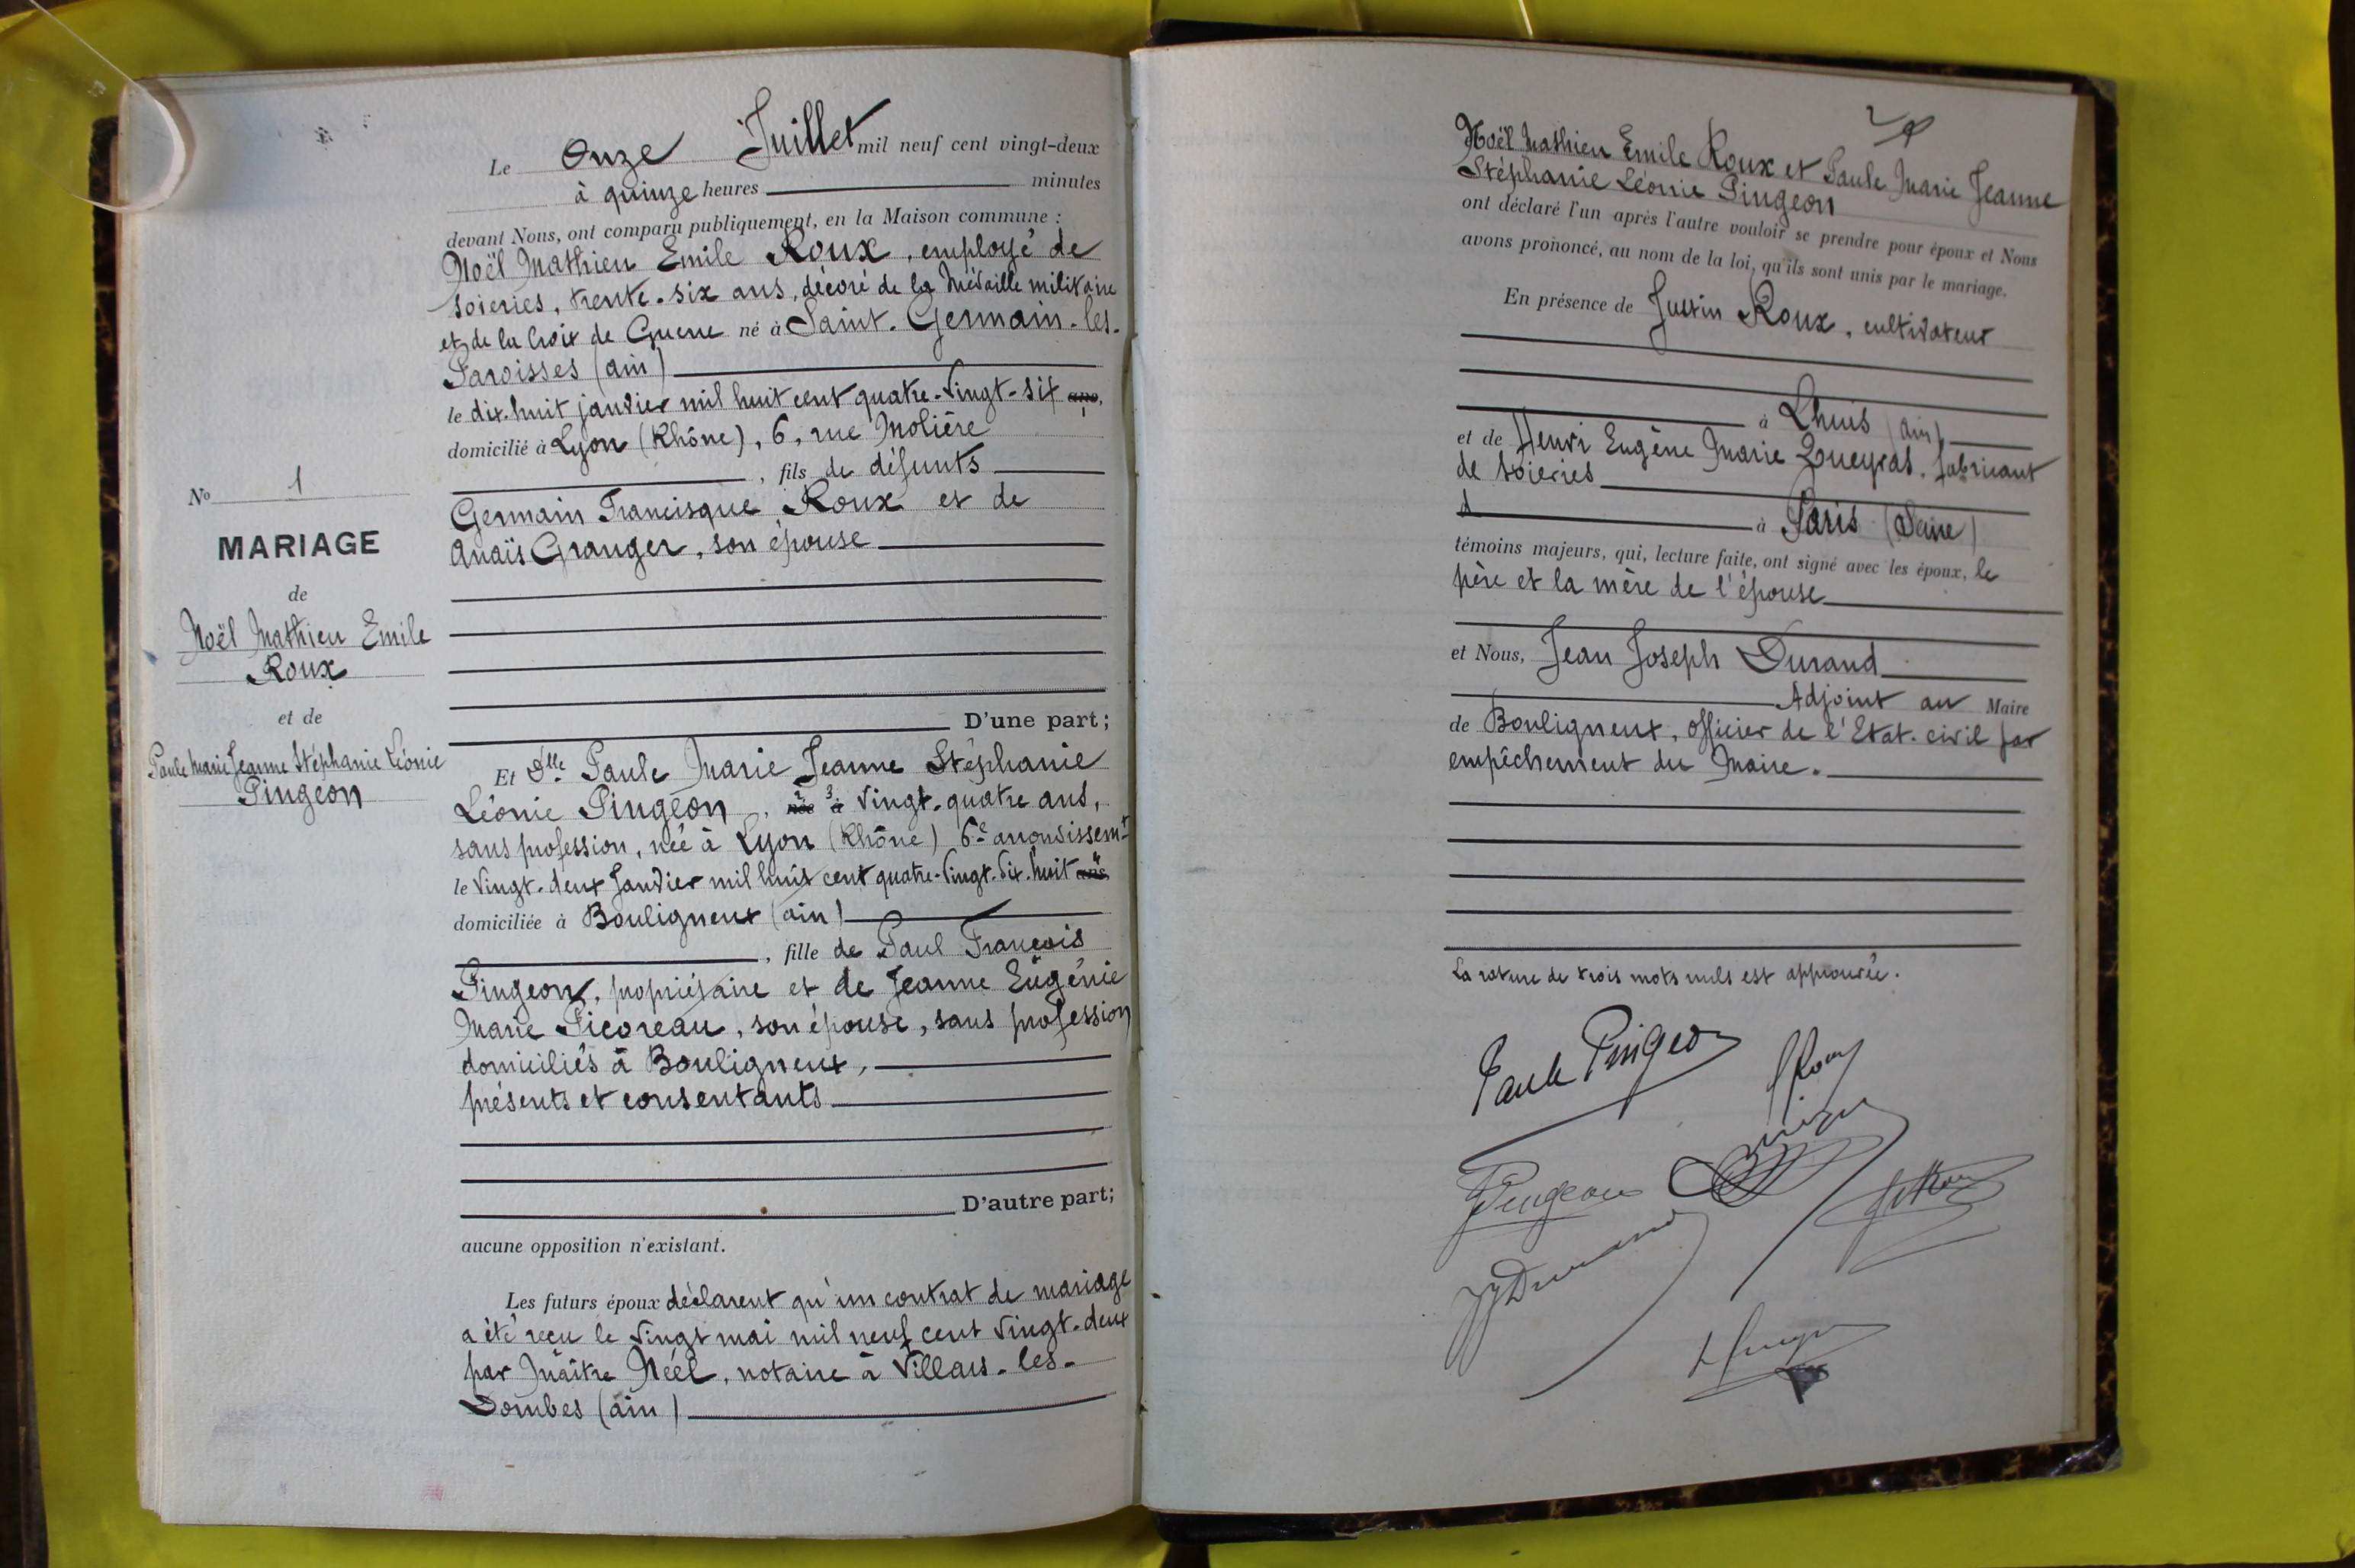 Le Onze Juillet mil neuf cent vingt-deux
à quinze heures minutes
devant Nous, ont comparu publiquement, en la Maison commune :
Noël Mathieu Emile Roux, employé de
soieries, trente-six ans, décoré de la Médaille militaire
et de la Croix de Guerre né à Saint-Germain-les-
Paroisses (Ain)
le dix-huit janvier mil huit cent quatre-vingt-six ans,
domicilié à Lyon (Rhône), 6, rue Molière
, fils de défunts
Germain Francisque Roux et de
Anaïs Granger, son épouse
D'une part;
No 1
MARIAGE
de
Noël Mathieu Emile
Roux
et de
Paule Marie Jeanne Stéphanie Léonie
Pingeon
Et Dlle Paule Marie Jeanne Stéphanie
Léonie Pingeon, née à vingt-quatre ans,
sans profession, née à Lyon (Rhône) 6e arrondissemt
le vingt-deux Janvier mil huit cent quatre-vingt-dix-huit ans
domiciliée à Bouligneux (Ain)
, fille de Paul François
Pingeon, propriétaire et de Jeanne Eugénie
Marie Picoreau, son épouse, sans profession
domiciliés à Bouligneux,
présents et consentants
D'autre part;
aucune opposition n'existant.
Les futurs époux déclarent qu'un contrat de mariage
a été reçu le vingt mai mil neuf cent vingt-deux
par Maître Néel, notaire à Villars-les-
Dombes (Ain)
2
Noël Mathieu Emile Roux et Paule Marie Jeanne
Stéphanie Léonie Pingeon
ont déclaré l'un après l'autre vouloir se prendre pour époux et Nous
avons prononcé, au nom de la loi, qu'ils sont unis par le mariage.
En présence de Justin Roux, cultivateur
à Lhuis (Ain)
et de Henri Eugène Marie Queyras, fabricant
de soieries
d à Paris (Seine)
témoins majeurs, qui, lecture faite, ont signé avec les époux, le
père et la mère de l'épouse
et Nous, Jean Joseph Durand
Adjoint au Maire
de Bouligneux, officier de l'Etat-civil par
empêchement du Maire.
La rature de trois mots nuls est approuvée.
Paule Pingeon
Roux
Pingeon
JJ Durand